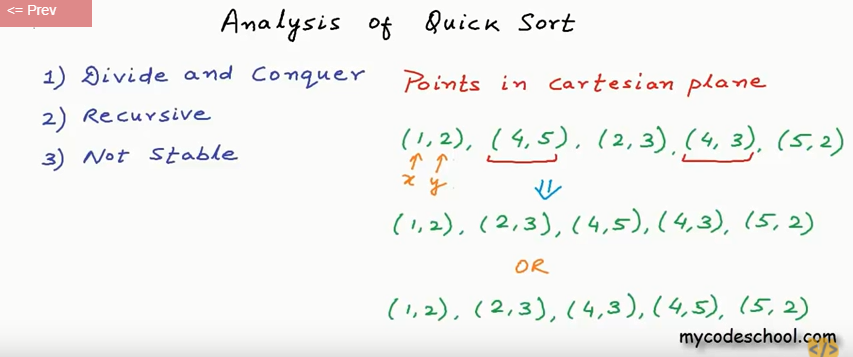 <= Prev
Analysis of Quick Sort
1) Divide and Conquer
2) Recursive
3) Not Stable
Points in cartesian plane
(1, 2), (4, 5), (2, 3), (4, 3), (5, 2)
x y
(1, 2), (2, 3), (4, 5), (4, 3), (5, 2)
OR
(1, 2), (2, 3), (4, 3), (4, 5), (5, 2)
mycodeschool.com
</>